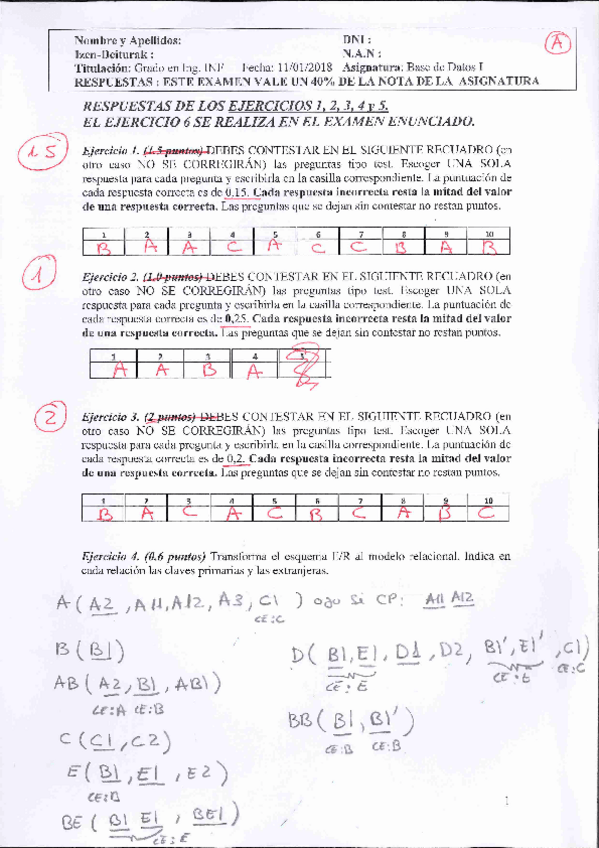 Nombre y Apellidos: DNI :
Izen-Deiturak : N.A.N :
Titulación: Grado en Ing. INF Fecha: 11/01/2018 Asignatura: Base de Datos I
RESPUESTAS : ESTE EXAMEN VALE UN 40% DE LA NOTA DE LA ASIGNATURA
A
RESPUESTAS DE LOS EJERCICIOS 1, 2, 3, 4 y 5.
EL EJERCICIO 6 SE REALIZA EN EL EXAMEN ENUNCIADO.
1.5
Ejercicio 1. (1.5 puntos) DEBES CONTESTAR EN EL SIGUIENTE RECUADRO (en
otro caso NO SE CORREGIRÁN) las preguntas tipo test. Escoger UNA SOLA
respuesta para cada pregunta y escribirla en la casilla correspondiente. La puntuación de
cada respuesta correcta es de 0.15. Cada respuesta incorrecta resta la mitad del valor
de una respuesta correcta. Las preguntas que se dejan sin contestar no restan puntos.
1 2 3 4 5 6 7 8 9 10
B A A C A C C B A B
1
Ejercicio 2. (1.0 puntos) DEBES CONTESTAR EN EL SIGUIENTE RECUADRO (en
otro caso NO SE CORREGIRÁN) las preguntas tipo test. Escoger UNA SOLA
respuesta para cada pregunta y escribirla en la casilla correspondiente. La puntuación de
cada respuesta correcta es de 0,25. Cada respuesta incorrecta resta la mitad del valor
de una respuesta correcta. Las preguntas que se dejan sin contestar no restan puntos.
1 2 3 4
A A B A
2
Ejercicio 3. (2 puntos) DEBES CONTESTAR EN EL SIGUIENTE RECUADRO (en
otro caso NO SE CORREGIRÁN) las preguntas tipo test. Escoger UNA SOLA
respuesta para cada pregunta y escribirla en la casilla correspondiente. La puntuación de
cada respuesta correcta es de 0,2. Cada respuesta incorrecta resta la mitad del valor
de una respuesta correcta. Las preguntas que se dejan sin contestar no restan puntos.
1 2 3 4 5 6 7 8 9 10
B A C A C B C A B C
Ejercicio 4. (0.6 puntos) Transforma el esquema E/R al modelo relacional. Indica en
cada relación las claves primarias y las extranjeras.
A ( A2 , A11, A12, A3, C1 ) ojo si CP: A11 A12
CE:C
B ( B1 )
D ( B1, E1, D1, D2, B1', E1' , C1 )
CE: E CE: E CE:C
AB ( A2, B1, AB1 )
CE:A CE:B
BB ( B1, B1' )
CE:B CE:B
C ( C1, C2 )
E ( B1, E1 , E2 )
CE:B
BE ( B1 E1 , BE1 )
CE: E
1